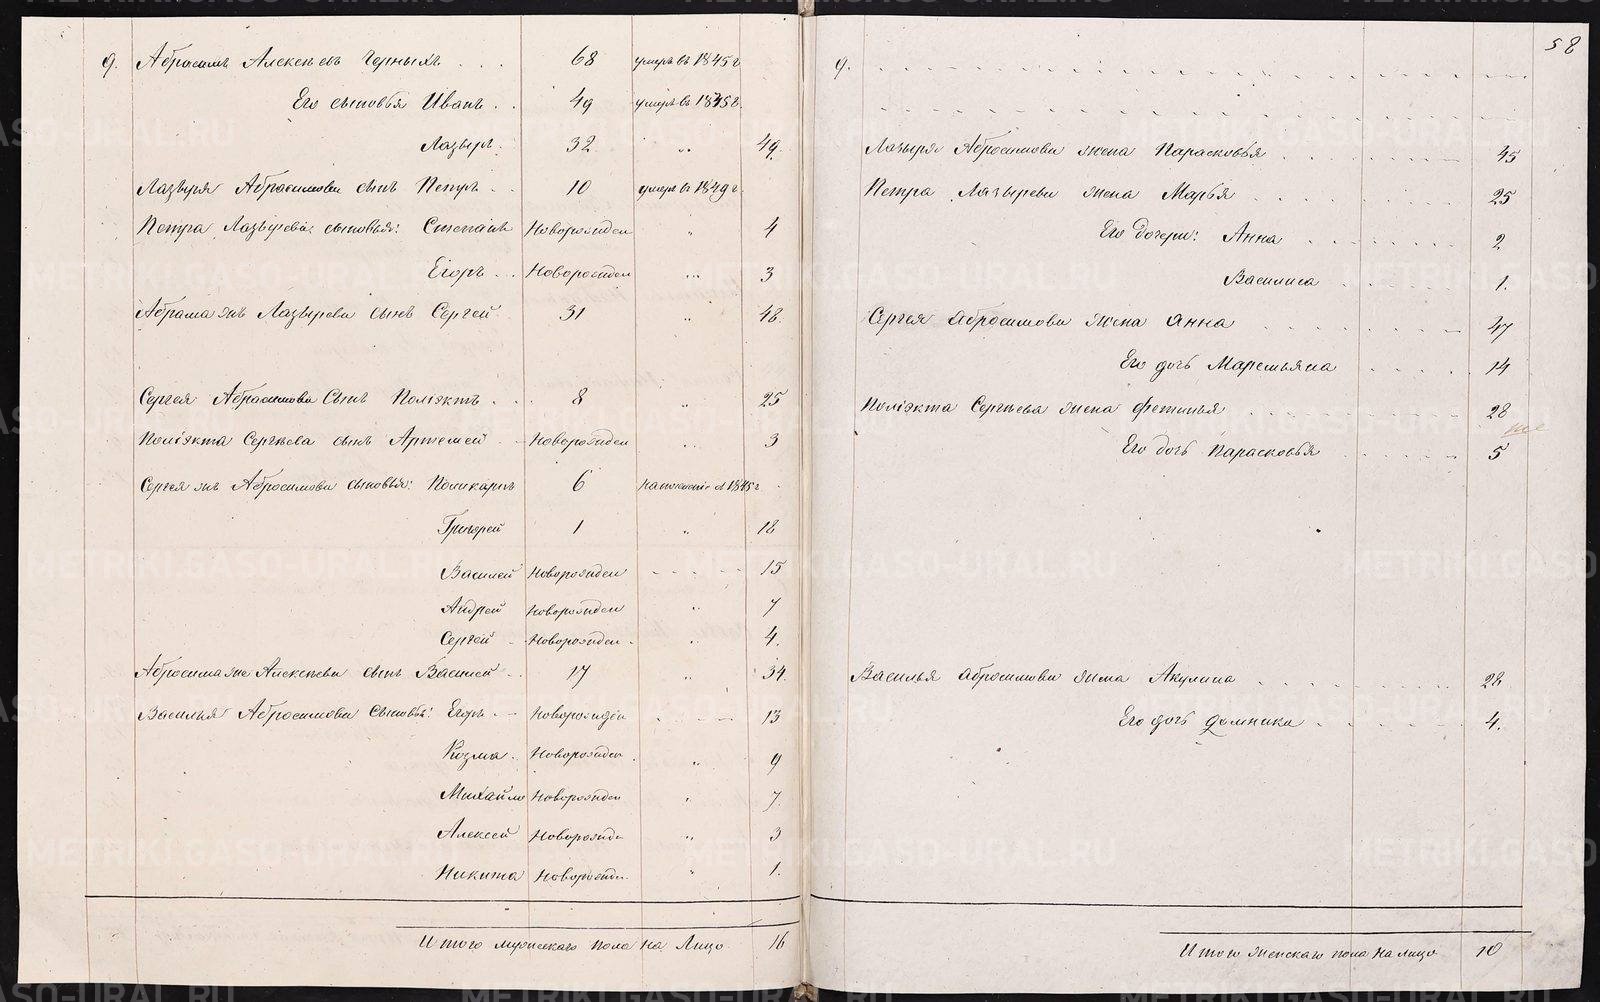 58
9. Абросимъ Алексѣевъ Черныхъ . . . 68 умеръ въ 1845 г
Его сыновья Иванъ . . 49 умеръ въ 1845 г.
Лазырь . 32 " 49.
Лазыря Абросимова сынъ Петръ . . 10 умеръ въ 1849 г.
Петра Лазырева сыновья: Степанъ Новорожден " 4
Егоръ . . Новорожден " 3
Лазырева сынъ Сергей 31 " 48.
Сергея Абросимова Сынъ Поліэктъ . . . 8 " 25
Поліэкта Сергѣева сынъ Артемей . - Новорожден " 3
Сергея жъ Абросимова сыновья: Поликарпъ 6 1845 г
Григорей 1 " 18
Василей Новорожден - - - - 15
Андрей Новорожден " 7
Сергей - Новорожден . " 4.
Абросима же Алексѣева сынъ Василей - 17 " 34.
Василья Абросимова Сыновья: Егоръ . - Новорожден . - - 13
Козма . Новорожден . " 9
Михайло Новорожден " 7.
Алексей Новорожде " 3
Никита Новорожден . " 1.
Итого мужескаго пола на Лицо 16
9.
Лазыря Абросимова жена Парасковья 45
Петра Лазырева жена Марья 25
Его дочери: Анна 2
Василиса 1.
Сергея Абросимова жена Анна 47
Его дочь Маремьяна 14
Поліэкта Сергѣева жена Фетинья 28
Его дочь Парасковья 5
Василья Абросимова жена Акулина 28
Его дочь Домника 4.
Итого женскаго пола на лицо 10
METRIKI.GASO-URAL.RU